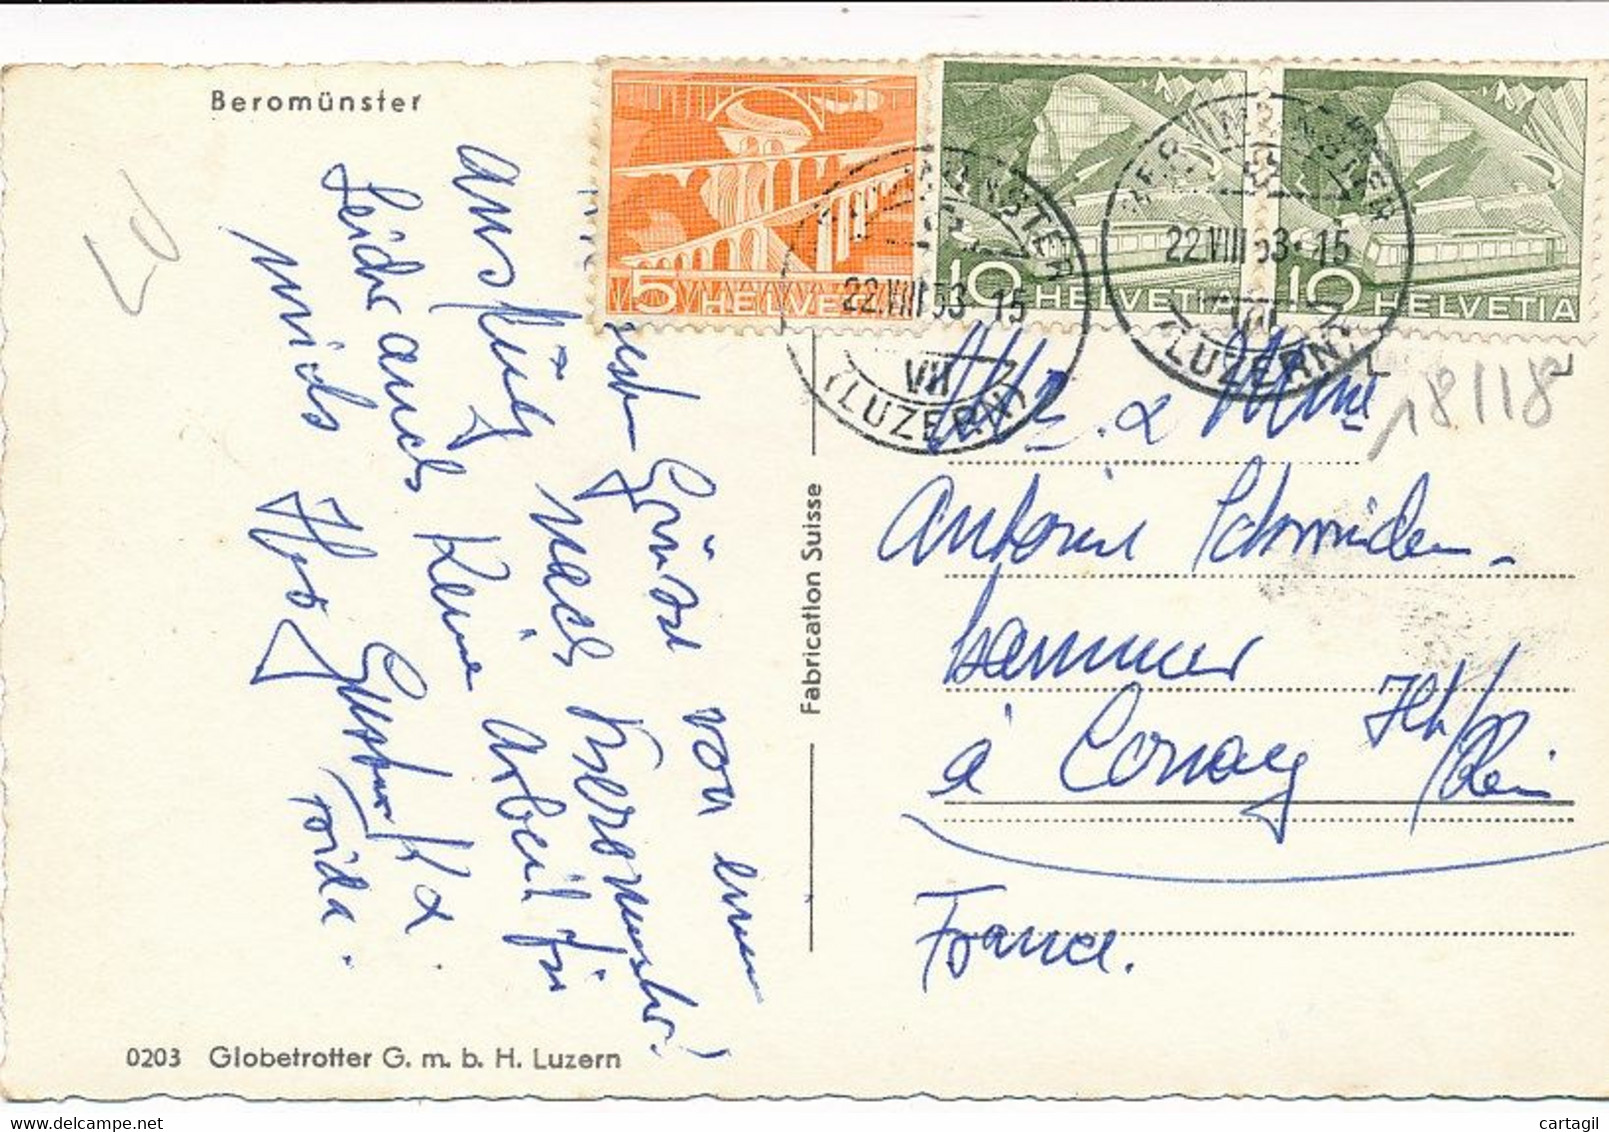 Beromünster
5 HELVETIA
10 HELVETIA
10 HELVETIA
BEROMÜNSTER
22.VIII 53-15
VIII
(LUZERN)
BEROMÜNSTER
22.VIII 53-15
VIII
(LUZERN)
18118
Grüsse von einem
Ausflug nach Beromünster!
Leider auch Keine Arbeit für
mich.
Gustav K &
Frida.
Mr. & Mme
Antoine Schmiden-
hammer
à Cernay Hht/Rhin
France.
Fabrication Suisse
0203 Globetrotter G. m. b. H. Luzern
cartagil
www.delcampe.net